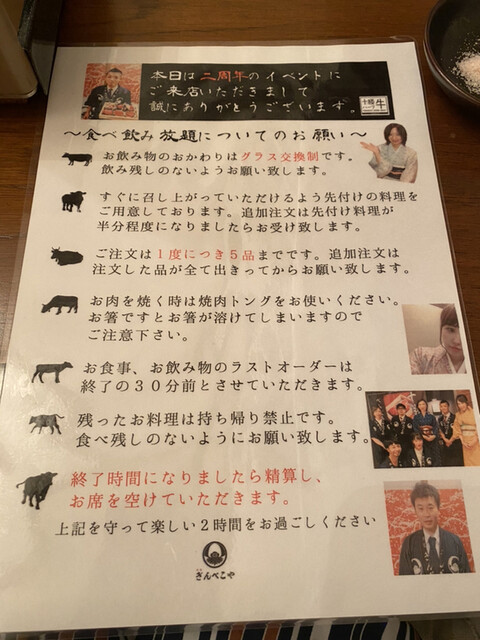 本日は二周年のイベントに
ご来店いただきまして
誠にありがとうございます。
〜食べ飲み放題についてのお願い〜
お飲み物のおかわりはグラス交換制です。
飲み残しのないようお願い致します。
すぐに召し上がっていただけるよう先付けの料理を
ご用意しております。追加注文は先付け料理が
半分程度になりましたらお受け致します。
ご注文は1度につき5品までです。追加注文は
注文した品が全て出きってからお願い致します。
お肉を焼く時は焼肉トングをお使いください。
お箸ですとお箸が溶けてしまいますので
ご注意下さい。
お食事、お飲み物のラストオーダーは
終了の30分前とさせていただきます。
残ったお料理は持ち帰り禁止です。
食べ残しのないようにお願い致します。
終了時間になりましたら精算し、
お席を空けていただきます。
上記を守って楽しい2時間をお過ごしください
ぎんべこや